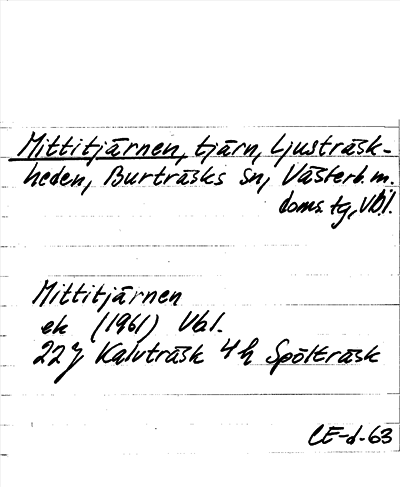 Mittitjärnen, tjärn, Ljusträsk-
heden, Burträsks sn, Västerb. m.
doms. tg, Vbl.
Mittitjärnen
ek (1961) Vbl.
22J Kalvträsk 4h Spölträsk
CE-d-63